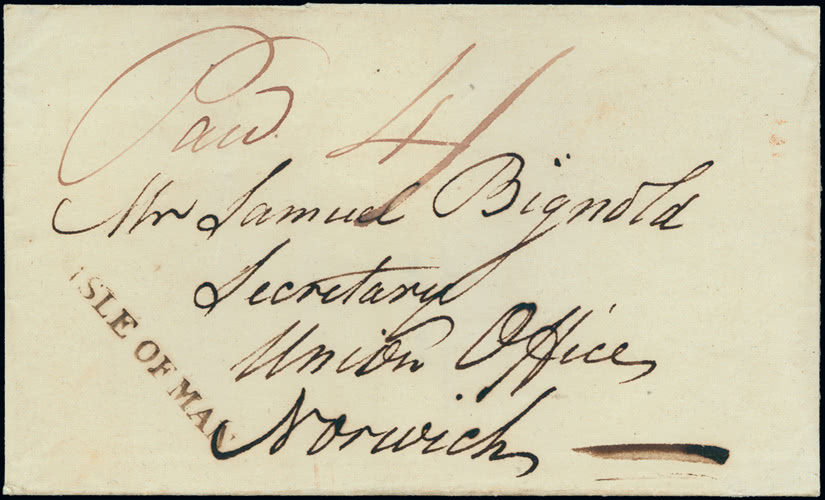 Paid. 4/
Mr Samuel Bignold
Secretary
Union Office
Norwich
ISLE OF MAN